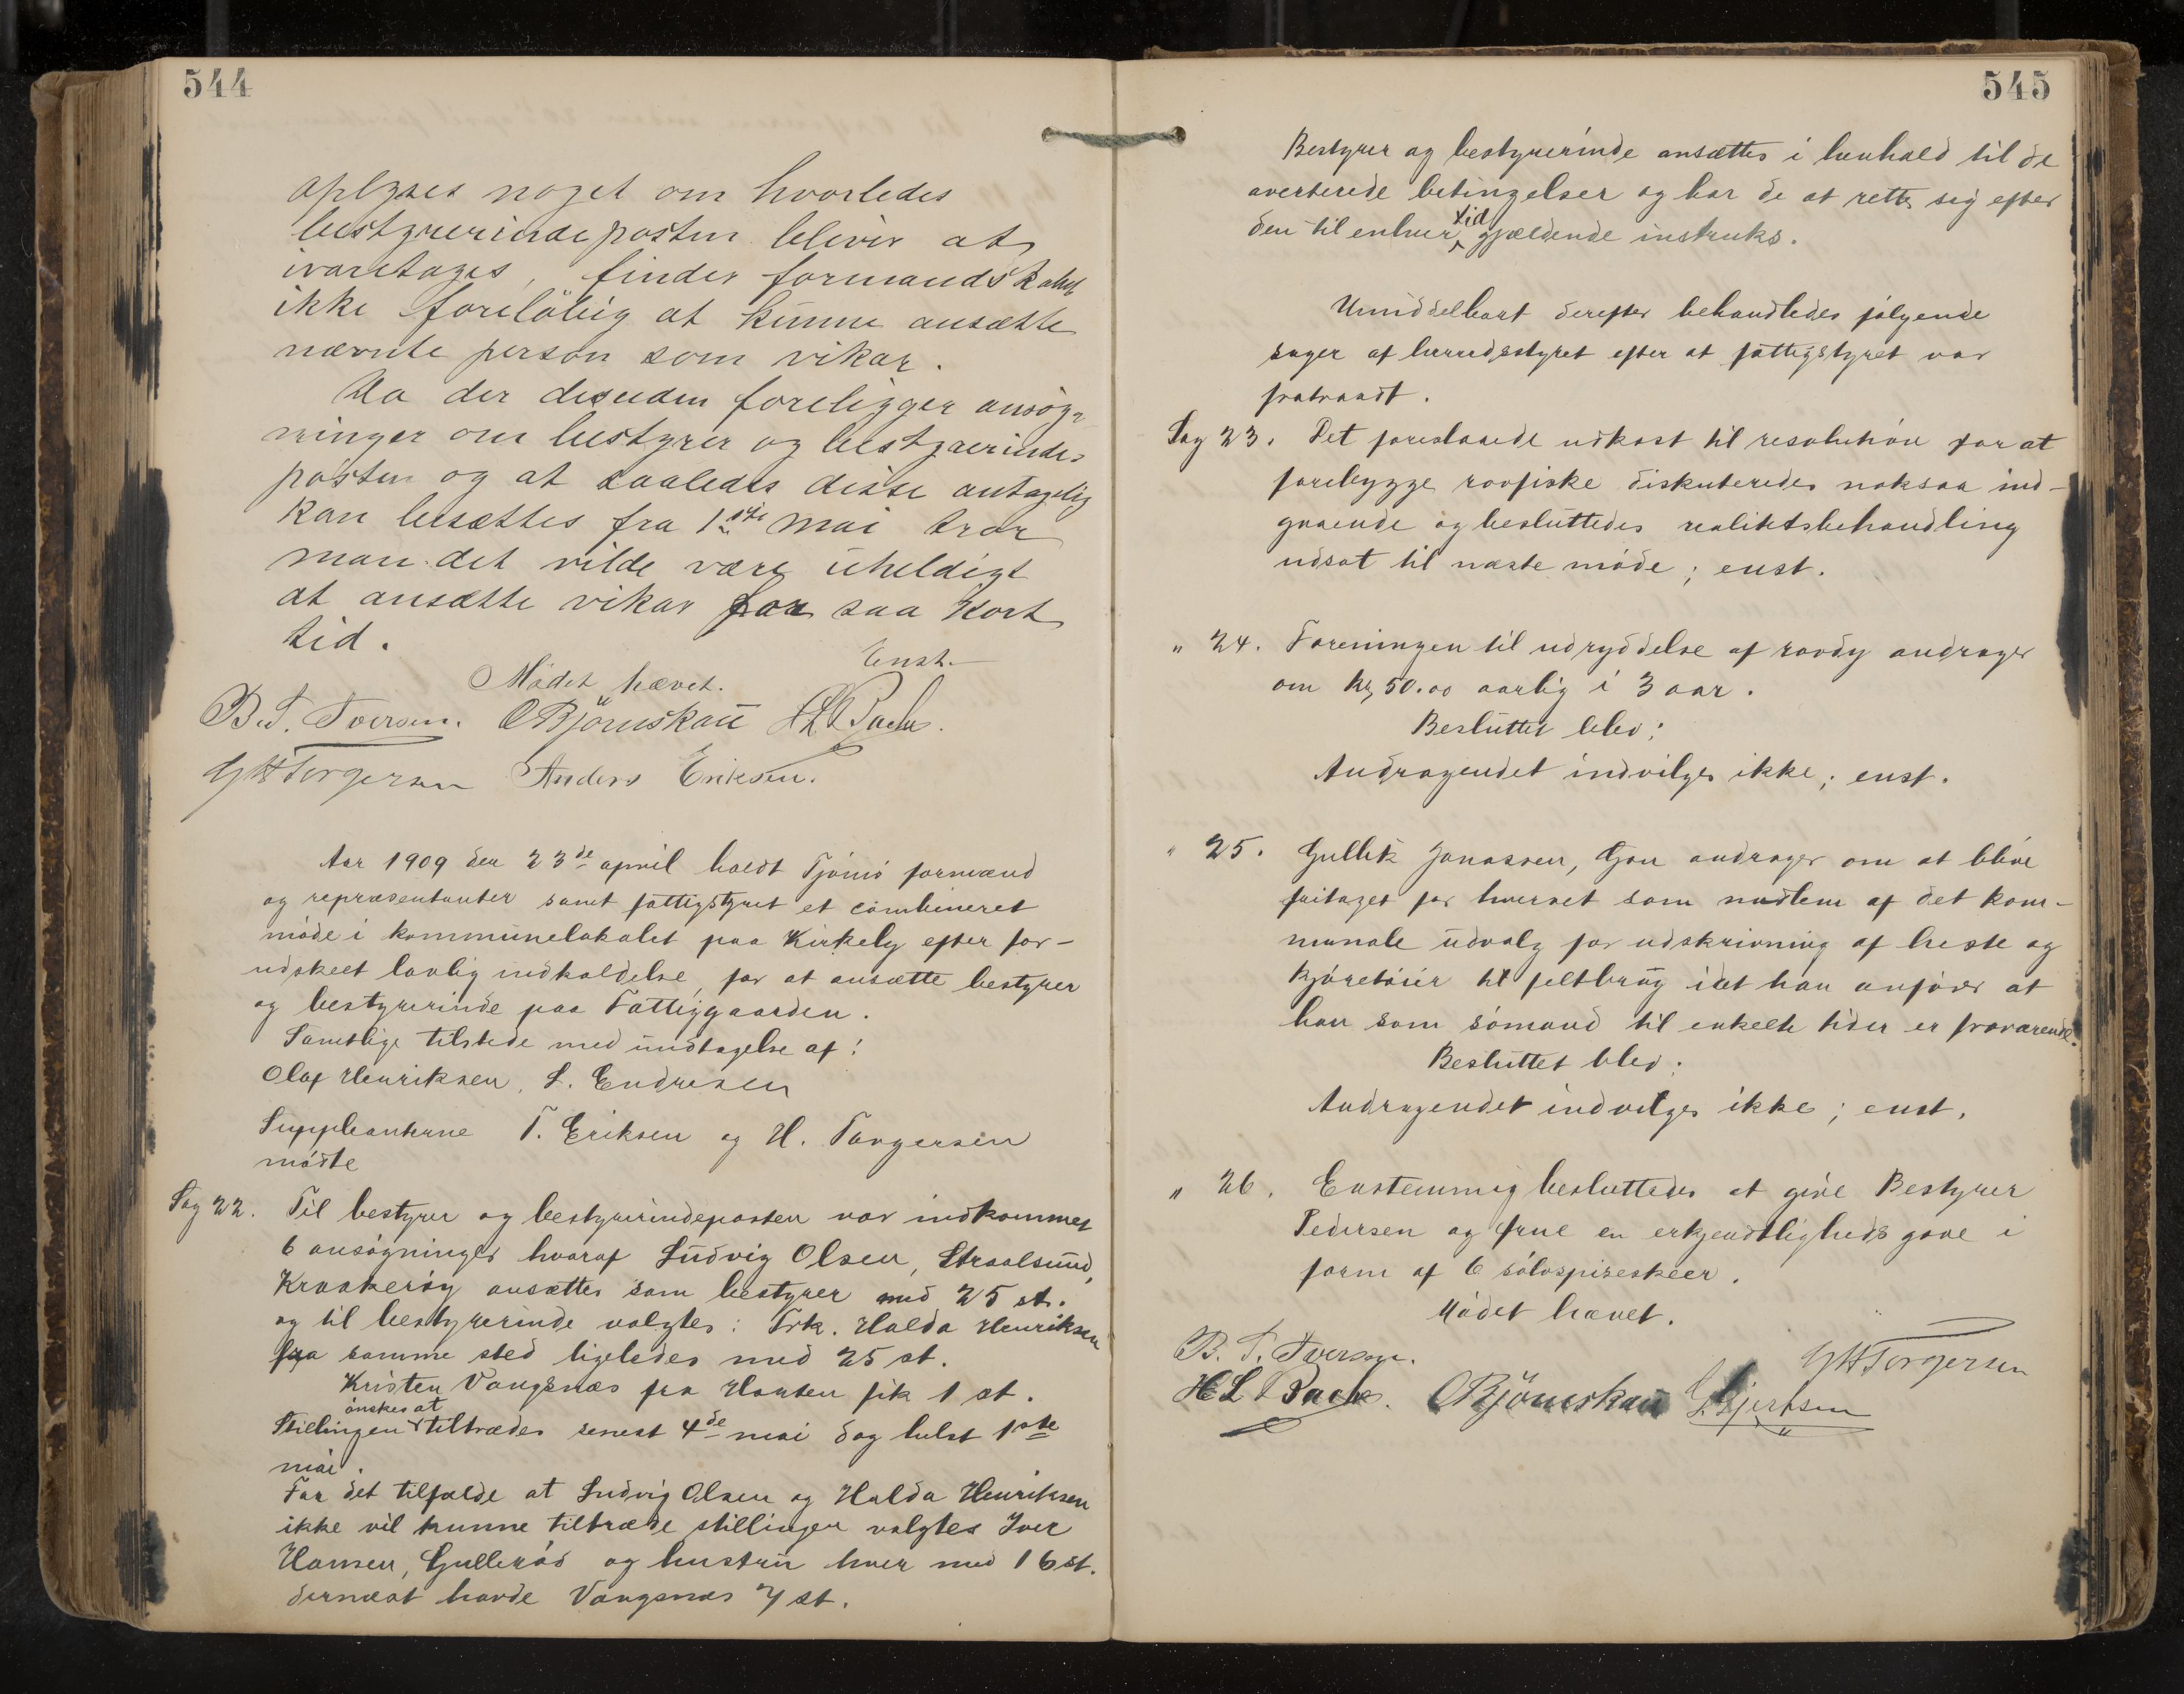 544
oplyses noget om hvorledes
bestyrerindeposten bliver at
ivaretages, finder formandskabet
ikke foreløbig at kunne ansætte
nævnte person som vikar.
Da der desuden foreligger ansøg-
ninger om bestyrer og bestyrerinde-
posten og at saaledes disse antagelig
kan besættes fra 1ste mai tror
man det vilde være uheldigt
at ansætte vikar for saa kort
tid.
Enst.
Mødet hævet.
B. T. Iversen. O Bjørnskau H L Bache.
G H Torgersen Anders Eriksen.
Aar 1909 den 23de april holdt Tjømø formænd
og repræsentanter samt fattigstyret et combineret
møde i kommunelokalet paa Kirkeby efter for-
udskeet lovlig indkaldelse, for at ansætte bestyrer
og bestyrerinde paa Fattiggaarden.
Samtlige tilstede med undtagelse af:
Olaf Henriksen, L. Endresen
Suppleanterne T. Eriksen og H. Torgersen
mødte
Sag 22. Til bestyrer og bestyrerindeposten var indkommet
6 ansøgninger hvoraf Ludvig Olsen, Stralsund,
Kraakerøy ansættes som bestyrer med 25 st.
og til bestyrerinde valgtes: Frk. Halda Henriksen
fra samme sted ligeledes med 25 st.
Kristen Vangsnæs fra Horten fik 1 st.
Stillingen ønskes at tiltrædes senest 4de mai dog helst 1ste
mai.
For det tilfælde at Ludvig Olsen og Halda Henriksen
ikke vil kunne tiltræde stillingen valgtes Iver
Hansen, Gullerød og hustru hver med 16 st.
dernæst havde Vangsnæs 7 st.
545
Bestyrer og bestyrerinde ansættes i henhold til de
averterede betingelser og har de at rette sig efter
den til enhver tid gjældende instruks.
Umiddelbart derefter behandledes følgende
sager af herredsstyret efter at fattigstyret var
fratraadt.
Sag 23. Det foreslaaede udkast til resolution for at
forebygge rovfiske diskuteredes noksaa ind-
gaaende og besluttedes realitetsbehandling
udsat til næste møde; enst.
" 24. Foreningen til udryddelse af rovdyr andrager
om kr 50.00 aarlig i 3 aar.
Besluttet blev:
Andragendet indvilges ikke; enst.
" 25. Gullik Jonassen, Gon andrager om at blive
fritaget for hvervet som medlem af det kom-
munale udvalg for udskrivning af heste og
kjøretøier til feltbrug idet han anfører at
han som sømand til enkelte tider er fraværende.
Besluttet blev:
Andragendet indvilges ikke; enst.
" 26. Enstemmig besluttedes at give Bestyrer
Pedersen og frue en erkjendtligheds gave i
form af 6 sølvspiseskeer.
Mødet hævet.
B. T. Iversen. G H Torgersen
H L Bache. O Bjørnskau Gjertsen